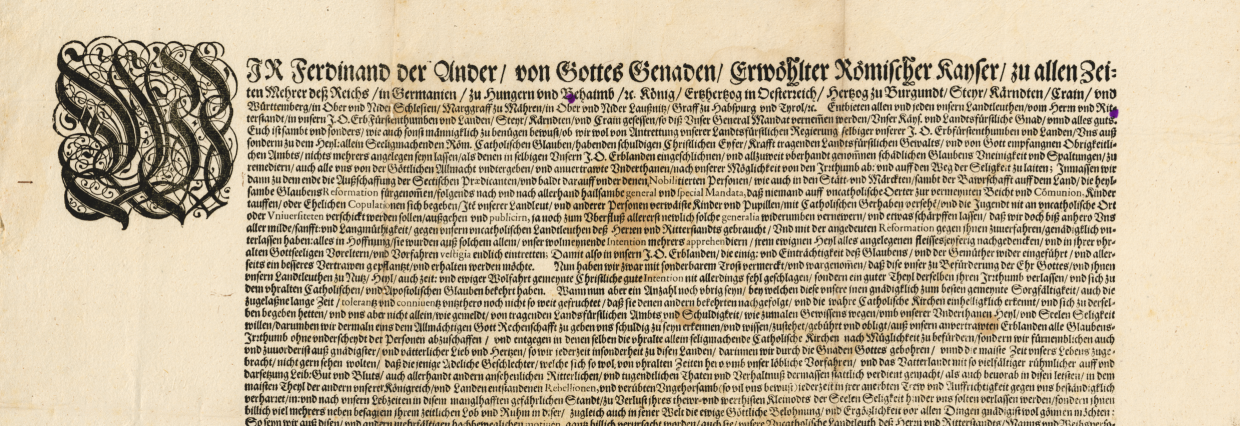 WIR Ferdinand der Ander/ von Gottes Genaden/ Erwöhlter Römischer Kayser/ zu allen Zei-
ten Mehrer deß Reichs/ in Germanien/ zu Hungern vnd Behaimb/ ꝛc. König/ Ertzhertzog in Oesterreich/ Hertzog zu Burgundt/ Steyr/ Kärndten/ Crain/ vnd
Württemberg/ in Ober vnd Nider Schlesien/ Marggraff zu Mähren/ in Ober vnd Nider Laußnitz/ Graff zu Habspurg vnd Tyrol/ ꝛc. Embieten allen vnd jeden vnsern Landtleuthen/ vom Herrn vnd Rit-
terstandt/ in vnsern J.O. Erb Fürstenthumben vnd Landen/ Steyr/ Kärndten/ vnd Crain gesessen/ so diß Vnser General Mandat vernemen werden/ Vnser Kays. vnd Landsfürstliche Gnad/ vnnd alles guts.
Euch ist sambt vnd sonders/ wie auch sonst männiglich zu benügen bewust/ ob wir wol von Antrettung vnserer Landtsfürstlichen Regierung selbiger vnserer J. O. Erbfürstenthumben vnd Landen/ Vns auß
sondern zu dem Heyl: allein Seeligmachenden Röm. Catholischen Glauben/ habenden schuldigen Christlichen Eyfer/ Krafft tragenden Landtsfürstlichen Gewalts/ vnd von Gott empfangnen Obrigkeitli-
chen Ambts/ nichts mehrers angelegen seyn lassen/ als denen in selbigen Vnsern J.O. Erblanden eingeschlichnen/ vnd allzuweit vberhandt genommen schädlichen Glaubens Vneinigkeit vnd Spaltungen/ zu
remediern/ auch alle vns von der Göttlichen Allmacht vndtergeben/ vnd anuertrawte Vnderthanen/ nach vnserer Möglichkeit von den Irrthumb ab: vnd auff den Weeg der Seligkeit zu laiten; Inmassen wir
dann zu dem ende die Außschaffung der Sectischen Prædicanten/ vnd baldt darauff vnder denen Nobilitierten Personen/ wie auch in den Stätt- vnd Märckten/ sambt der Bawrschafft auff den Land/ die heyl-
sambe Glaubens Reformation fürgenommen/ folgends nach vnd nach allerhand hailsambe general vnd special Mandata, daß niemand auff vncatholische Oerter zur vermeynter Beicht vnd Cõmunion, Kinder
tauffen/ oder Ehelichen Copulationen sich begeben/ Itē vnserer Landleut/ vnd anderer Personen verwäiste Kinder vnd Pupillen/ mit Catholischen Gerhaben versehē/ vnd die Jugend nit an vncatholische Ort
oder Vniuersiteten verschickt werden sollen/ außgehen vnd publicirn, ja noch zum Vberfluß allererst newlich solche generalia widerumben vernewern/ vnd etwas schärpffen lassen/ daß wir doch biß anhero Vns
aller milde/ sanfft: vnd Langmütigkeit/ gegen vnsern vncatholischen Landtleuthen deß Herren vnd Ritterstandts gebraucht/ Vnd mit der angedeuten Reformation gegen jhnen zuuerfahren/ genädiglich vn-
terlassen haben: alles in Hoffnung/ sie wurden auß solchem allem/ vnser wolmeynende Intention mehrers apprehendiern/ jrem ewignen Heyl alles angelegenen fleisses/ eyferig nachgedencken/ vnd in jhrer vhr-
alten Gottseeligen Voreltern/ vnd Vorfahren vestigia endlich eintretten; Damit also in vnsern J.O. Erblanden/ die einig: vnd Einträchtigkeit deß Glaubens/ vnd der Gemüther wider eingeführt/ vnd aller-
seits ein besseres Vertrawen gepflantzt/ vnd erhalten werden möchte. Nun haben wir zwar mit sonderbarem Trost vermerckt/ vnd wargenomen/ daß dise vnser zu Befürderung der Ehr Gottes/ vnd jhnen
vnsern Landtleuthen zu Nutz/ Heyl/ auch zeit: vnd ewiger Wolfahrt gemeynte Christliche gute Intention nit allerdings fehl geschlagen/ sondern ein guter Theyl derselben jhren Irthumb verlassen/ vnd sich zu
dem vhralten Catholischen/ vnd Apostolischen Glauben bekehrt haben. Wann nun aber ein Anzahl noch vbrig seyn/ bey welchen diese vnsere inen gnädiglich zum besten gemeinte Sorgfältigkeit/ auch die
zugelaßne lange Zeit/ tolerantz vnd conniuentz vntzthero noch nicht so weit gefruchtet/ daß sie denen andern bekehrten nachgefolgt/ vnd die wahre Catholische Kirchen einhelliglich erkennt/ vnd sich zu dersel-
ben begeben hetten/ vnd vns aber nicht allein/ wie gemeldt/ von tragenden Landtsfürstlichen Ambts vnd Schuldigkeit/ wie zumalen Gewissens wegen/ vmb vnserer Vnderthanen Heyl/ vnd Seelen Seligkeit
willen/ darumben wir dermaln eins dem Allmächtigen Gott Rechenschafft zu geben vns schuldig zu seyn erkennen/ vnd wissen/ zustehet/ gebührt vnd obligt/ auß vnsern anvertrawten Erblanden alle Glaubens-
Irrthumb ohne vnderscheydt der Personen abzuschaffen/ vnd entgegen in denen selben die vhralte allein seligmachende Catholische Kirchen nach Müglichkeit zu befürdern/ sondern wir fürnemblich auch
vnd zuuorderist auß gnädigster/ vnd vätterlicher Lieb vnd Hertzen/ so wir jederzeit insonderheit zu disen Landen/ darinnen wir durch die Gnaden Gottes gebohren/ vnnd die maiste Zeit vnsers Lebens zuge-
bracht/ nicht gern sehen wolten/ daß diejenige Adeliche Geschlechter/ welche sich so wol, von vhralten Zeiten her vmb vnser löbliche Vorfahren/ vnd das Vatterlandt mit so vielfältiger rühmlicher auff vnd
darsetzung Leib: Gut vnd Bluts/ auch allerhandt andern ansehenlichen Ritterlichen/ vnd tugendlichen Thaten vnd Verhaltnuß dermassen stattlich verdient gemacht/ als auch bevorab in disen letsten/ in dem
maisten Theyl der andern vnsern Königreich/ vnd Landen entstandenen Rebellionen, vnd verübten Vngehorsamb (so vil vns bewust) jederzeit in jrer anerebten Trew vnd Auffrichtigkeit gegen vns beständiglich
verharret/ in: vnd nach vnsern Lebzeiten in disem manglhafften gefährlichen Standt/ zu Verlust jhres thewr- vnd werthisten Kleinodts der Seelen Seligkeit hinder vns solten verlassen werden/ sondern jhnen
billich viel mehrers neben besagtem jhrem zeitlichen Lob vnd Ruhm in diser/ zugleich auch in jener Welt die ewige Göttliche Belohnung/ vnd Ergözlichkeit vor allen Dingen gnädigist wol gönnen möchten:
So seyn wir auß disen/ vnd andern mehrfältigen hochbeweglichen motiuen, gantz billich verursacht worden/